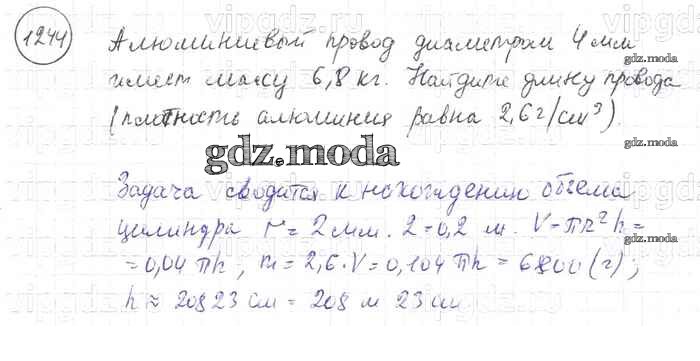 1244
Алюминиевый провод диаметром 4 мм
имеет массу 6,8 кг. Найдите длину провода
(плотность алюминия равна 2,6 г/см³).
gdz.moda
Задача сводится к нахождению объема
цилиндра r = 2 мм. 2 = 0,2 м. V = πr²h =
= 0,04 πh, m = 2,6·V = 0,104 πh = 6800 (г);
h ≈ 20823 см = 208 м 23 см